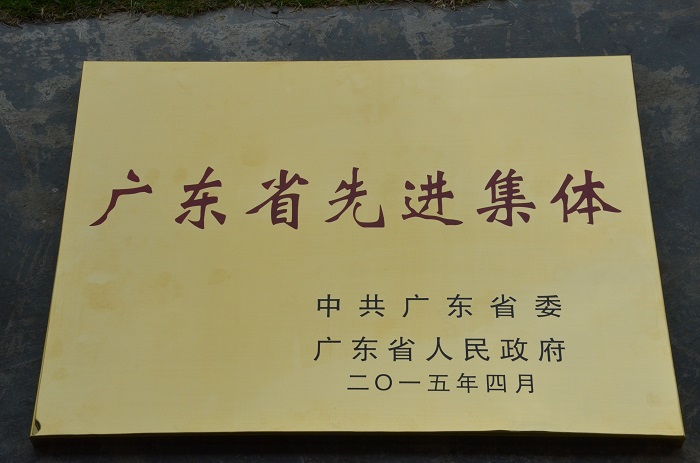 广东省先进集体
中共广东省委
广东省人民政府
二〇一五年四月